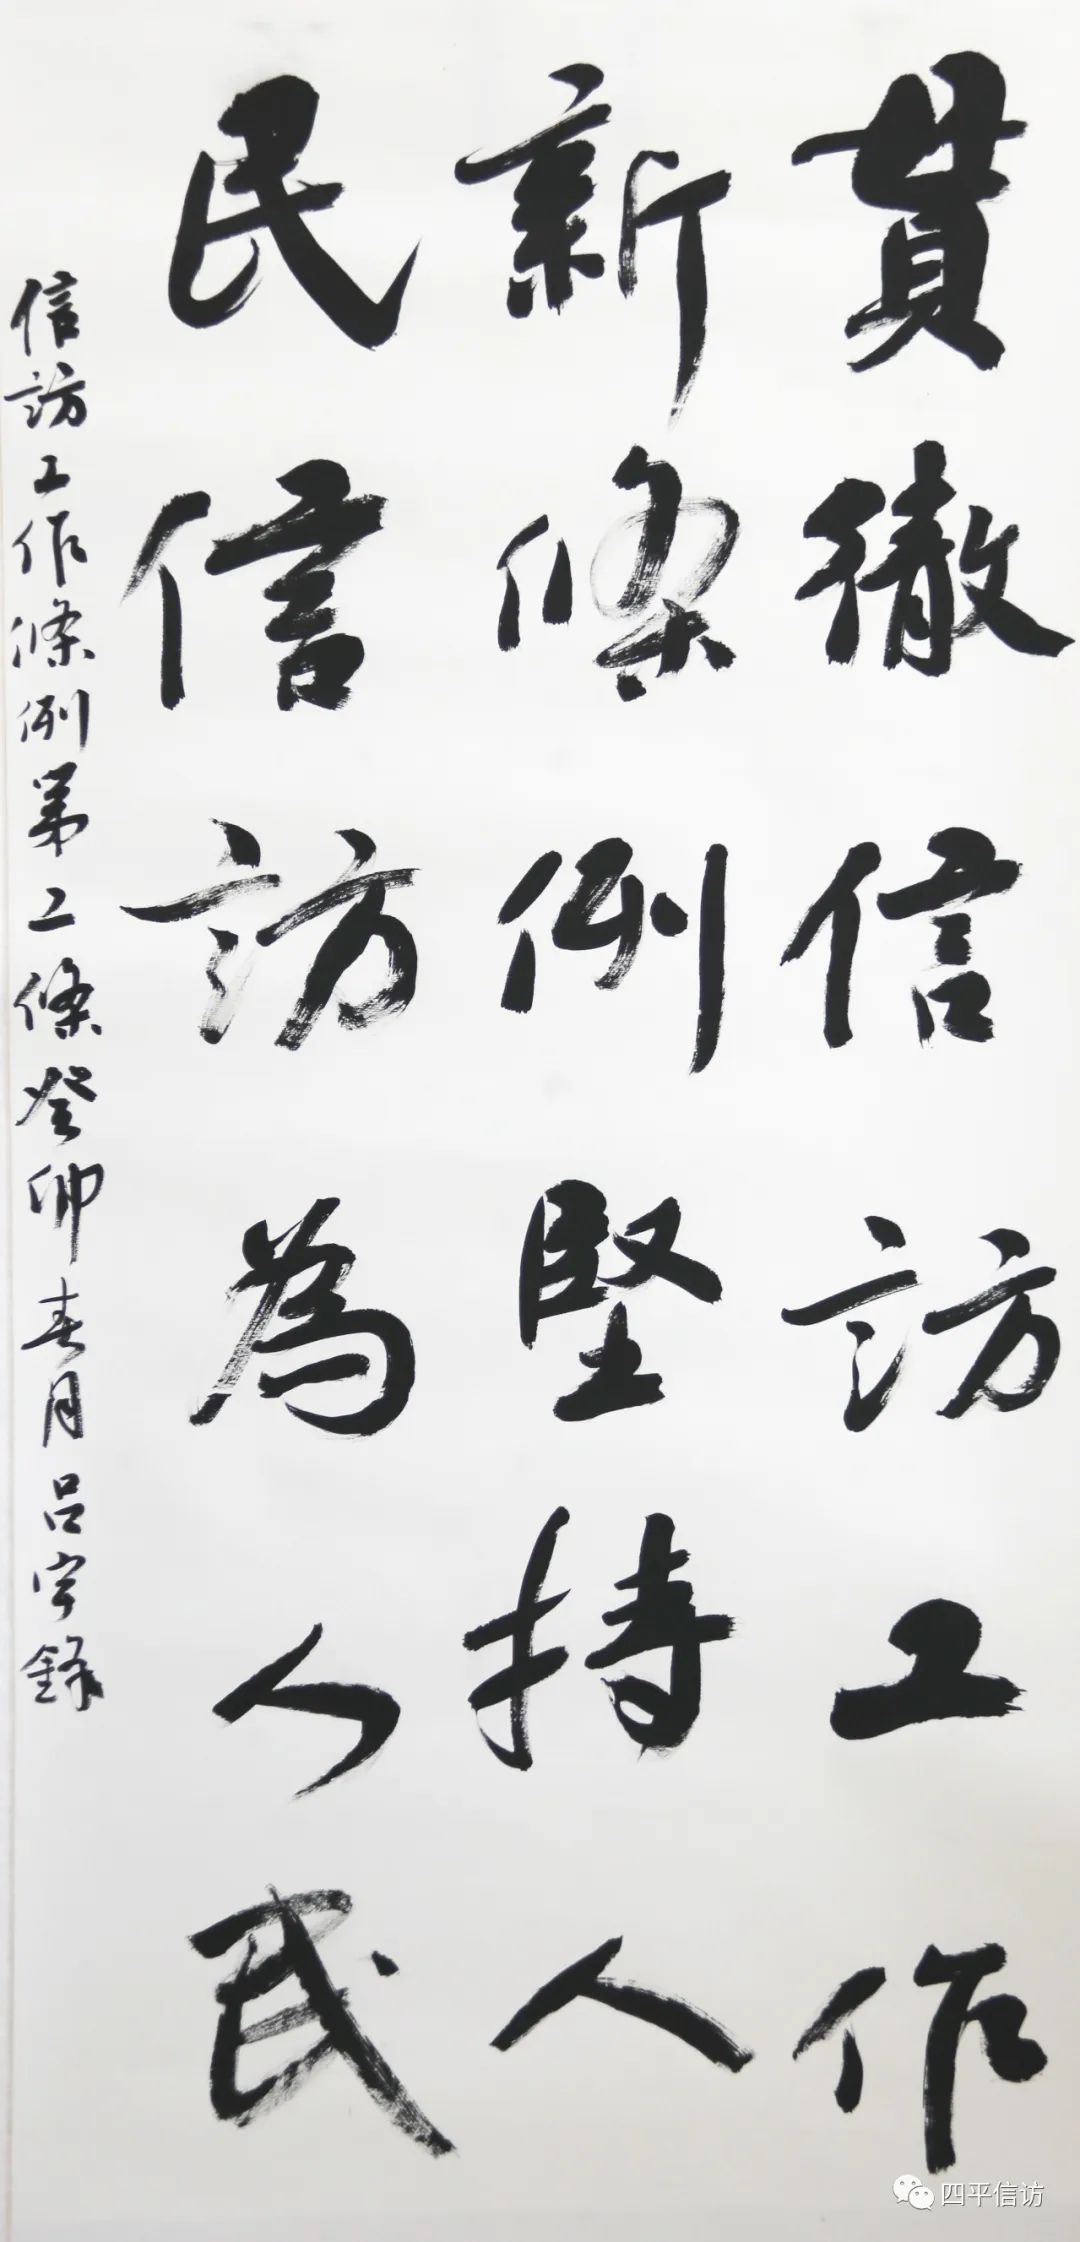 貫徹信訪工作
新條例堅持人
民信訪為人民
信訪工作條例第二條癸卯春月吕宇錄
四平信访